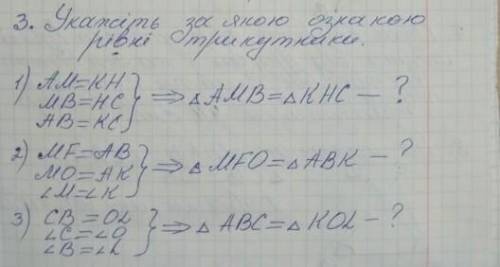 3. Укажіть за якою ознакою
рівні трикутники.
1) AM=KH
MB=HC
AB=KC } ⇒ △AMB=△KHC — ?
2) MF=AB
MO=AK
∠M=∠K } ⇒ △MFO=△ABK — ?
3) CB=OL
∠C=∠O
∠B=∠L } ⇒ △ABC=△KOL — ?